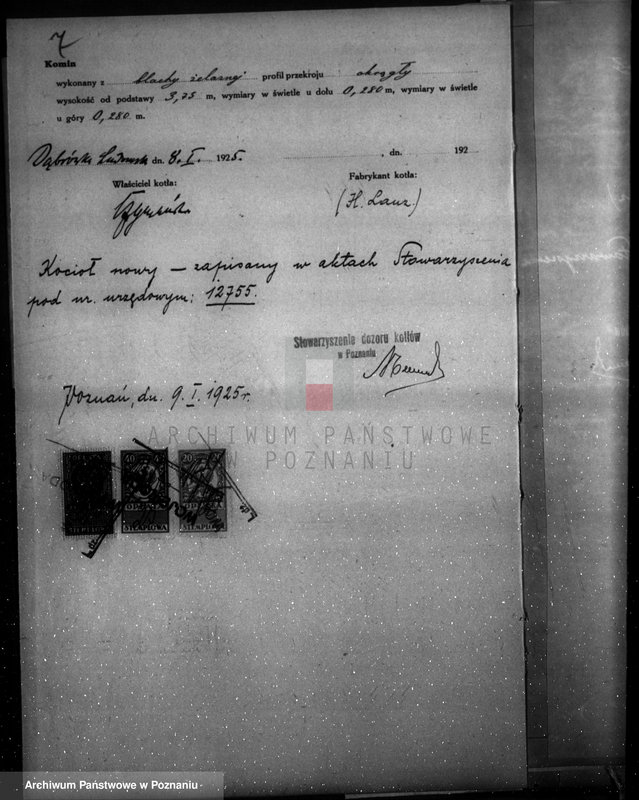 7
Komin
wykonany z blachy żelaznej profil przekroju okrągły
wysokość od podstawy 3,75 m, wymiary w świetle u dołu 0,280 m, wymiary w świetle
u góry 0,280 m.
dn. 8. I. 1925. , dn. 192
Właściciel kotła: Fabrykant kotła:
(H. Lanz.)
Kocioł nowy — zapisany w aktach Stowarzyszenia
pod nr. urzędowym: 12755.
Stowarzyszenie dozoru kotłów
w Poznaniu
Poznań, dn. 9. I. 1925 r.
ARCHIWUM PAŃSTWOWE
W POZNANIU
40 20
OPŁATA
STEMPLOWA STEMPLOWA STEMPLOWA
Archiwum Państwowe w Poznaniu